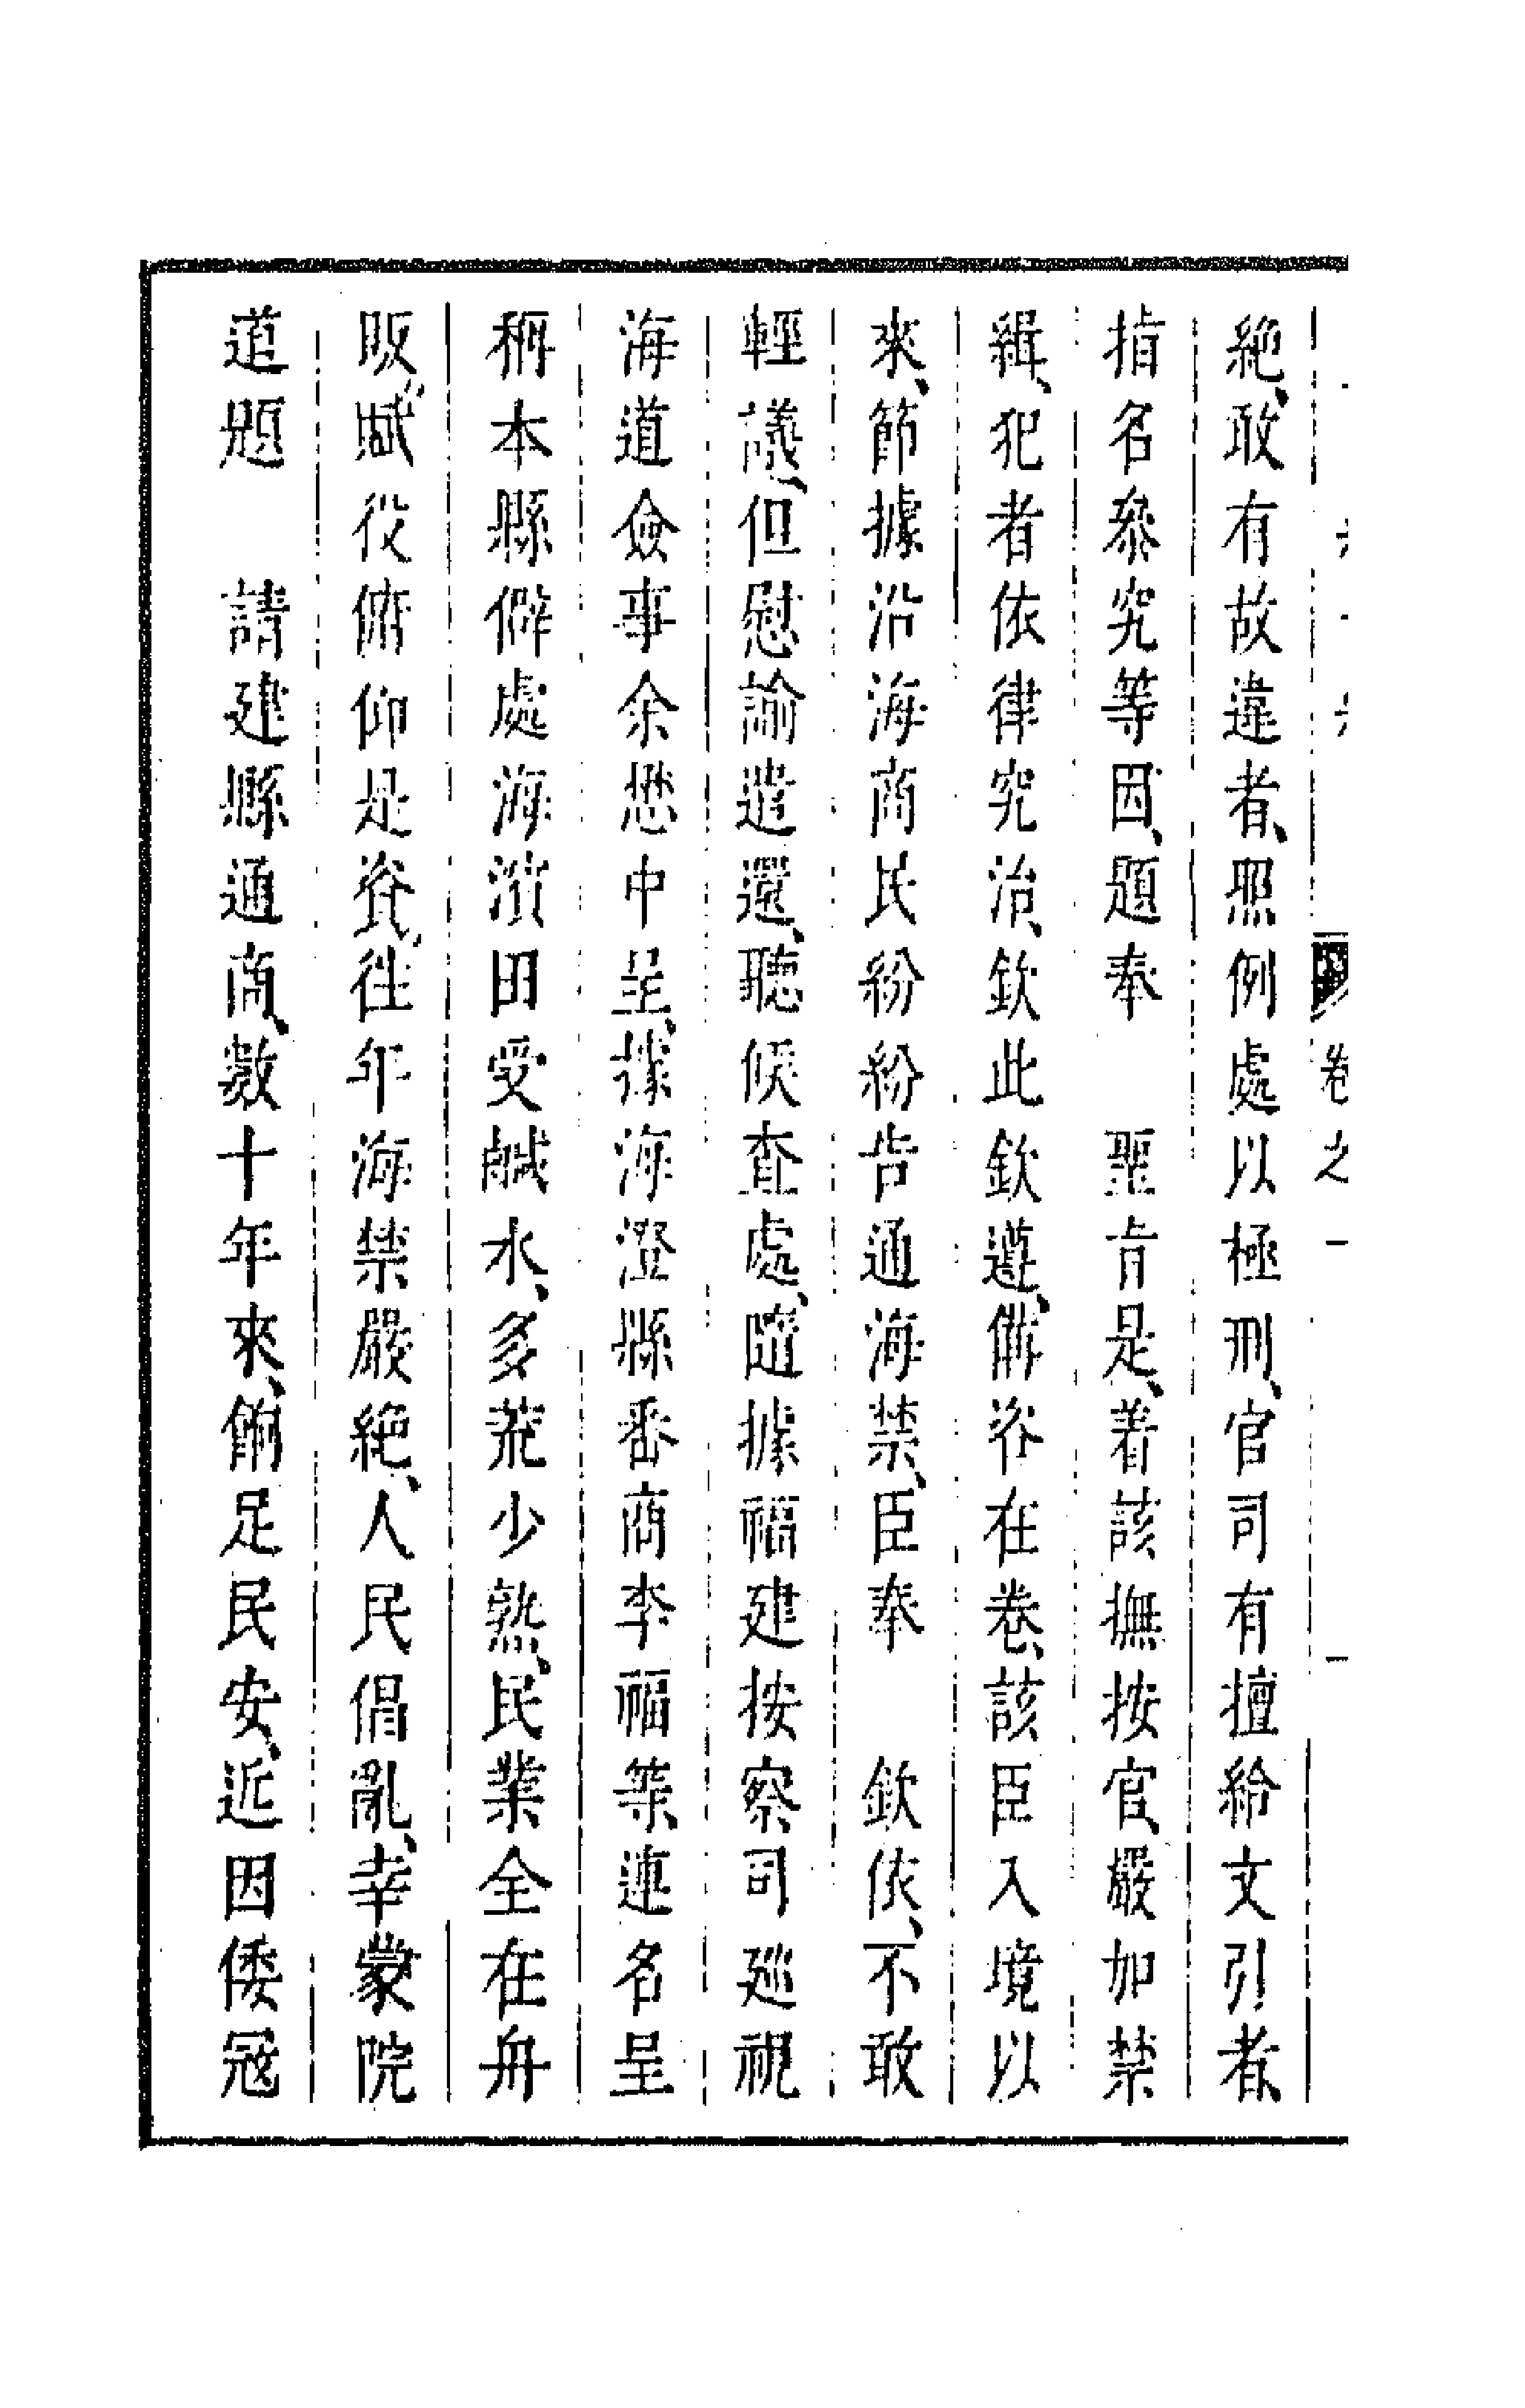 卷之一
絶、敢有故違者、照例處以極刑、官司有擅給文引者、
指名叅究等因、題奉　聖旨是、着該撫按官、嚴加禁
緝、犯者依律究治、欽此欽遵、備咨在卷、該臣入境以
來、節據沿海商民紛紛告通海禁、臣奉　欽依、不敢
輕議、但慰諭遣還、聽候查處、隨據福建按察司廵視
海道僉事余懋中呈、據海澄縣番商李福等、連名呈
稱本縣僻處海濱田受鹹水、多荒少熟、民業全在舟
販、賦役俯仰是資、往年海禁嚴絶、人民倡亂、幸蒙院
道題　請建縣通商、數十年來、餉足民安、近因倭寇